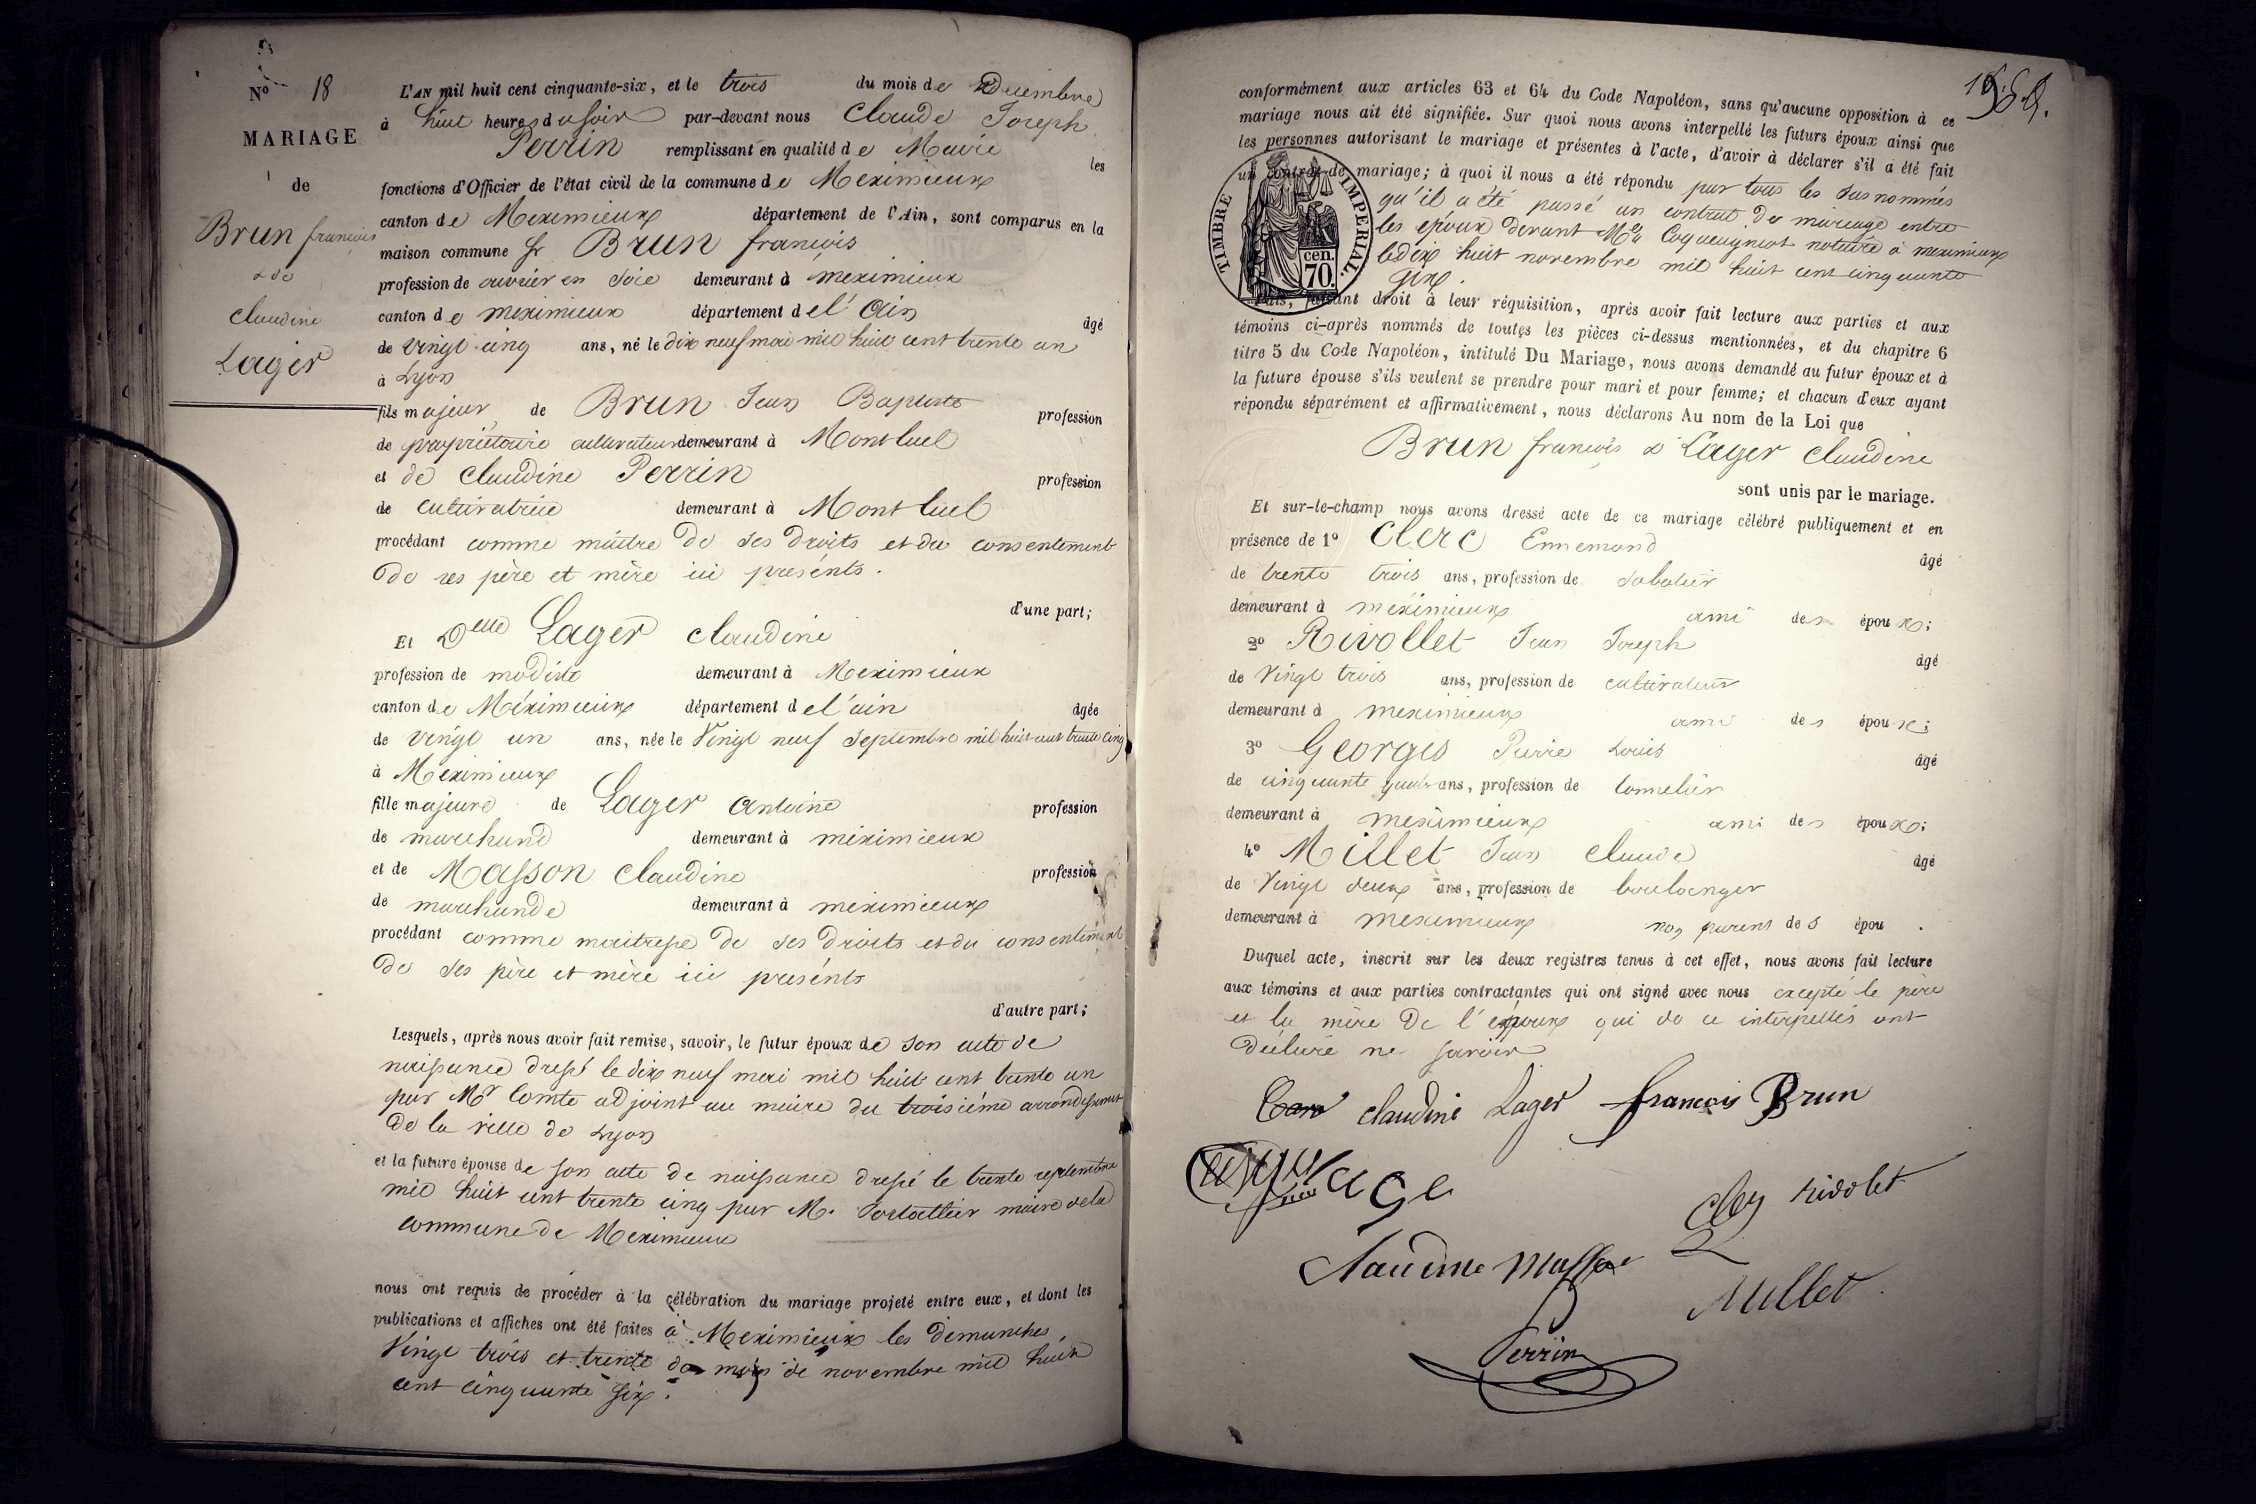 N° 18
MARIAGE
de
Brun françois
&
claudine
Lager
L'AN mil huit cent cinquante-six, et le trois du mois de Decembre
à huit heures du soir par-devant nous Claude Joseph
Perrin remplissant en qualité de Maire les
fonctions d'Officier de l'état civil de la commune de Meximieux
canton de Meximieux département de l'Ain, sont comparus en la
maison commune Sr Brun françois
profession de ouvrier en soie demeurant à meximieux
canton de meximieux département de l'Ain âgé
de vingt cinq ans, né le dix neuf mai mil huit cent trente un
à Lyon
fils majeur de Brun Jean Baptiste profession
de propriétaire cultivateur demeurant à Montluel
et de claudine Perrin profession
de cultivatrice demeurant à Montluel
procédant comme maitre de ses droits et du consentement
de ses père et mère ici presents.
d'une part;
Et Delle Lager claudine
profession de modiste demeurant à Meximieux
canton de Méximieux département de l'ain âgée
de vingt un ans, née le Vingt neuf septembre mil huit cent trente cinq
à Meximieux
fille majeure de Lager antoine profession
de marchand demeurant à méximieux
et de Masson claudine profession
de marchande demeurant à meximieux
procédant comme maitresse de ses droits et du consentement
de ses père et mère ici presénts
d'autre part;
Lesquels, après nous avoir fait remise, savoir, le futur époux de son acte de
naissance dressé le dix neuf mai mil huit cent trente un
par Mr Comte adjoint au maire du troisiéme arrondissement
de la ville de Lyon
et la future épouse de son acte de naissance dressé le trente septembre
mil huit cent trente cinq par M. Portallier maire de la
commune de Meximieux
nous ont requis de procéder à la célébration du mariage projeté entre eux, et dont les
publications et affiches ont été faites à Meximieux les dimanches
Vingt trois et trente du mois de novembre mil huit
cent cinquante six.
conformément aux articles 63 et 64 du Code Napoléon, sans qu'aucune opposition à ce
mariage nous ait été signifiée. Sur quoi nous avons interpellé les futurs époux ainsi que
les personnes autorisant le mariage et présentes à l'acte, d'avoir à déclarer s'il a été fait
un contrat de mariage; à quoi il nous a été répondu par tous les susnommés
qu'il a été passé un contrat de mariage entre
les époux devant Me Coqueugniot notaire à meximieux
le dix huit novembre mil huit cent cinquante
six.
TIMBRE IMPERIAL.
cen.
70.
Puis, faisant droit à leur réquisition, après avoir fait lecture aux parties et aux
témoins ci-après nommés de toutes les pièces ci-dessus mentionnées, et du chapitre 6
titre 5 du Code Napoléon, intitulé Du Mariage, nous avons demandé au futur époux et à
la future épouse s'ils veulent se prendre pour mari et pour femme; et chacun d'eux ayant
répondu séparément et affirmativement, nous déclarons Au nom de la Loi que
Brun françois & Lager claudine
sont unis par le mariage.
Et sur-le-champ nous avons dressé acte de ce mariage célébré publiquement et en
présence de 1° Clerc Ennemond âgé
de trente trois ans, profession de sabotier
demeurant à méximieux ami des époux;
2° Rivollet Jean Joseph âgé
de Vingt trois ans, profession de cultivateur
demeurant à meximieux ami des époux;
3° Georges Pierre Louis âgé
de cinquante quatre ans, profession de tonnelier
demeurant à meximieux ami des époux;
4° Millet Jean claude âgé
de Vingt deux ans, profession de boulanger
demeurant à meximieux non parent des épou .
Duquel acte, inscrit sur les deux registres tenus à cet effet, nous avons fait lecture
aux témoins et aux parties contractantes qui ont signé avec nous excepté le père
et la mère de l'époux qui de ce interpellés ont
déclaré ne savoir
claudine Lager françois Brun
rivolet
claudine Masson
Millet
Perrin